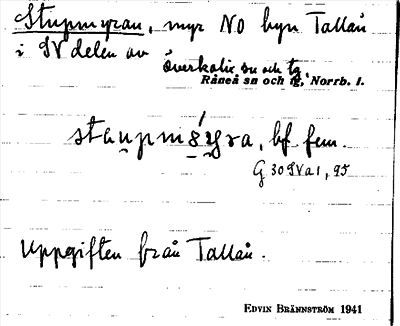 Stupmyran, myr NO byn Tallån
i SV delen av Överkalix sn och tg.
Råneå sn och tg, Norrb. l.
staupmýyra, bf fem.
G 30 SV a 1, 95
Uppgiften från Tallån.
EDVIN BRÄNNSTRÖM 1941